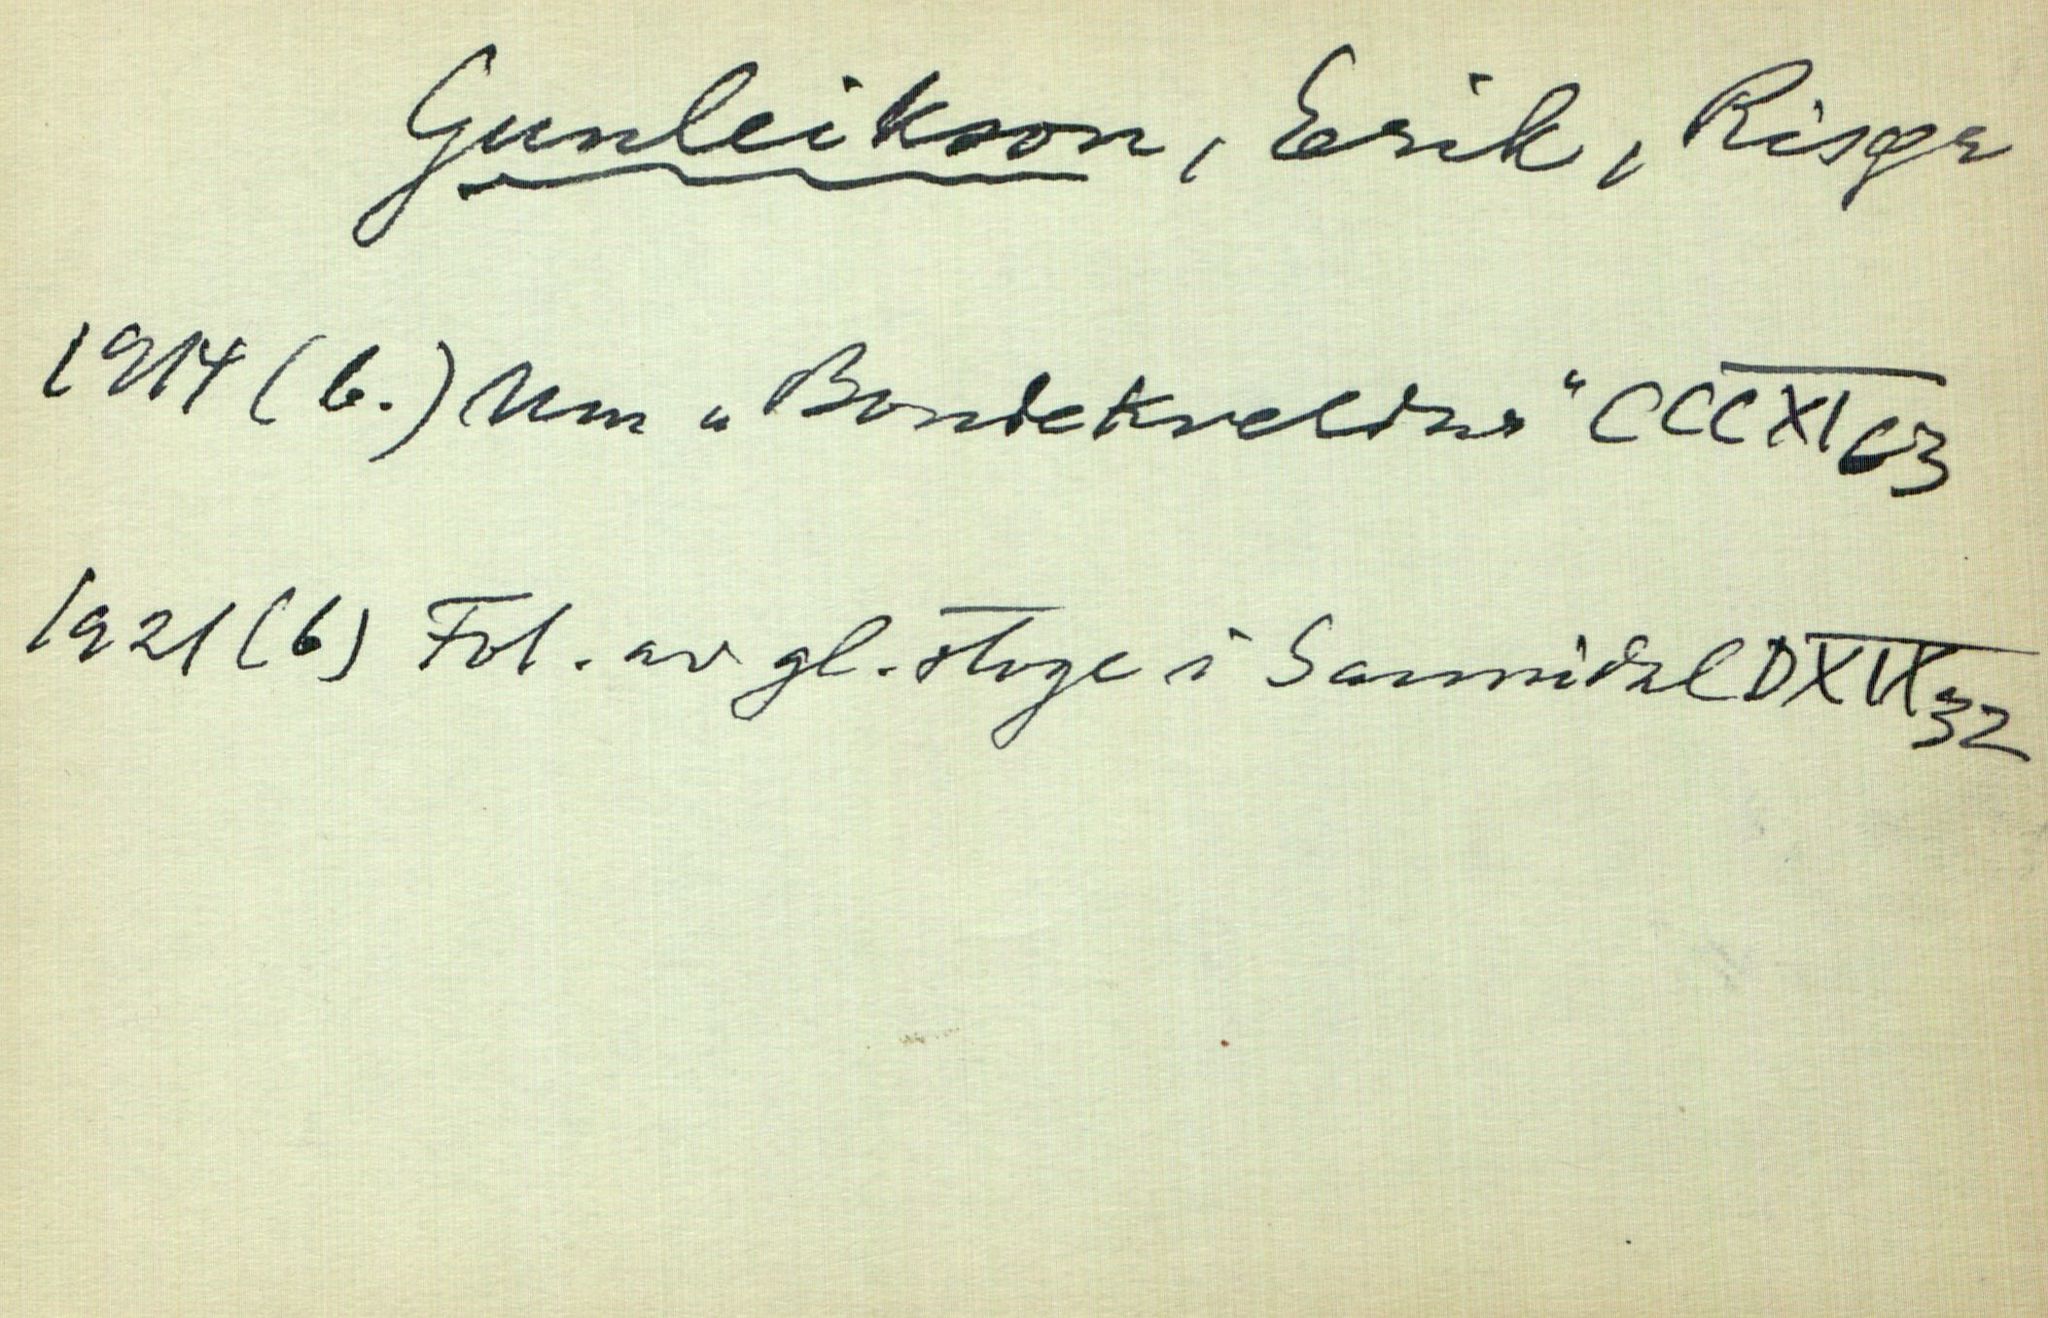 Gunleikson, Erik, Risør
1914 (b.) Um „Bondekvelden" CCCXI 63
1921 (b) Fot. av gl. stoge i Sannidal DXIX 32